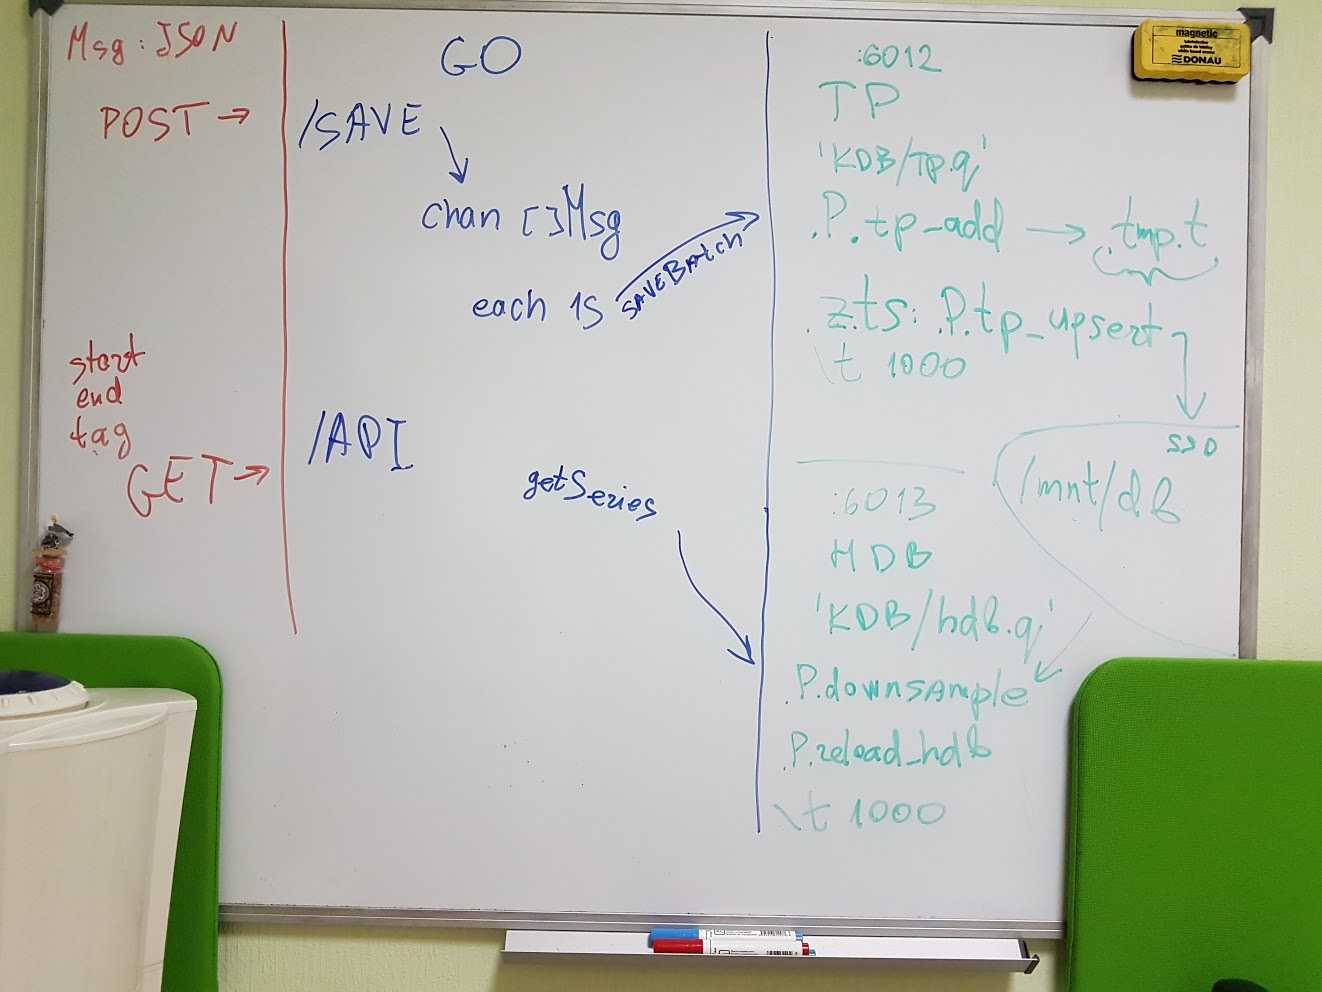 Msg: JSON
POST →
start
end
tag
GET →
GO
/SAVE
chan []Msg
each 1s
SAVEBATCH
/API
getSeries
:6012
TP
'KDB/TP.q'
.P.tp_add → .tmp.t
.z.ts: .P.tp_upsert
\t 1000
SSD
/mnt/db
:6013
HDB
'KDB/hdb.q'
.P.downsample
.P.reload_hdb
\t 1000
magnetic
DONAU